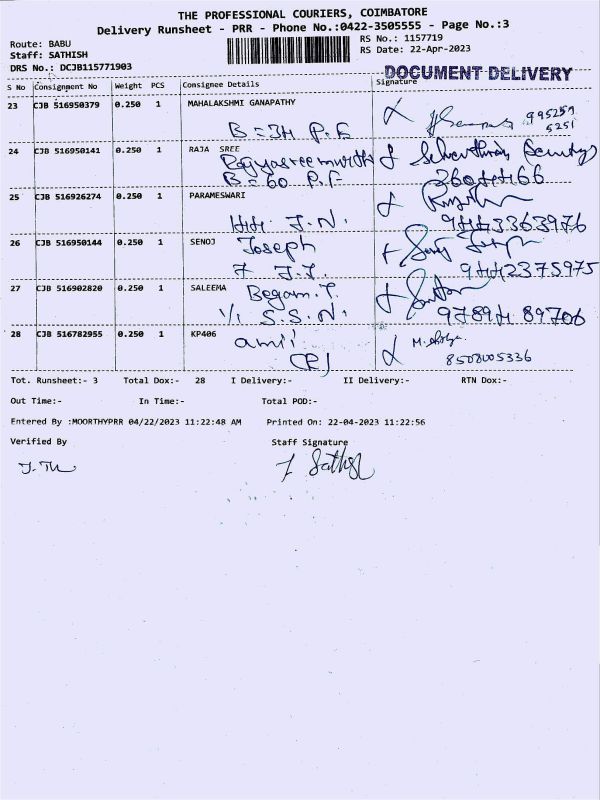 THE PROFESSIONAL COURIERS, COIMBATORE
Delivery Runsheet - PRR - Phone No.:0422-3505555 - Page No.:3
Route: BABU
RS No.: 1157719
Staff: SATHISH
RS Date: 22-Apr-2023
DRS No.: DCJB115771903
DOCUMENT DELIVERY
S No Consignment No Weight PCS Consignee Details Signature
23 CJB 516950379 0.250 1 MAHALAKSHMI GANAPATHY
995259
5251
B = 34 P.F
24 CJB 516950141 0.250 1 RAJA SREE
B = 60 P.F
25 CJB 516926274 0.250 1 PARAMESWARI
44 J.N. 9443363976
26 CJB 516950144 0.250 1 SENOJ Joseph
7 J.J. 9442375975
27 CJB 516902820 0.250 1 SALEEMA Begam.T.
1/1 S.S.N. 97894 89706
28 CJB 516782955 0.250 1 KP406
8508005336
Tot. Runsheet:- 3 Total Dox:- 28 I Delivery:- II Delivery:- RTN Dox:-
Out Time:- In Time:- Total POD:-
Entered By :MOORTHYPRR 04/22/2023 11:22:48 AM Printed On: 22-04-2023 11:22:56
Verified By Staff Signature
Sathish